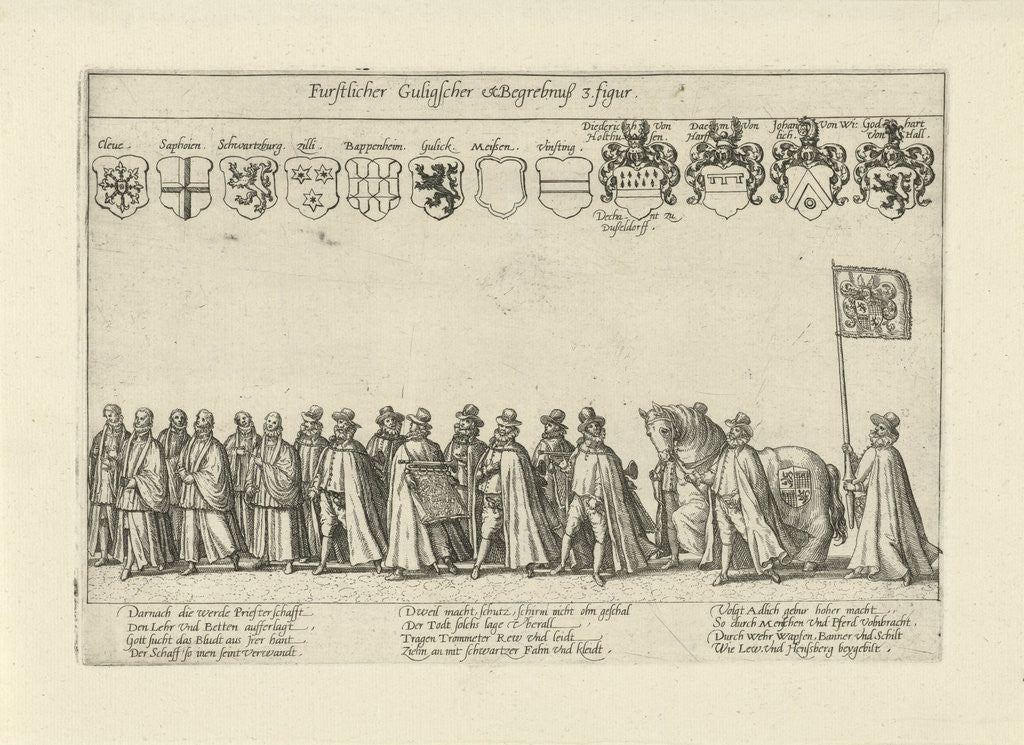 Furstlicher Guligscher &c Begrebnuß 3. figur.
Cleue.
Saphoien.
Schwartzburg.
zilli.
Bappenheim.
Gulick.
Meißen.
Vinsting.
Diederich von
Holthusen.
Decha-nt zu
Dußeldorff.
Daem von
Harff
Johan von Wi:
lich.
Godhart
von Hall.
Darnach die werde Priesterschafft
Den Lehr vnd Betten aufferlagt,
Gott sucht das Bludt aus Jrer hant
Der Schaff so inen seint verwandt.
Dweil macht, schutz, schirm nicht ohn geschal
Der Todt solchs lage vberall,
Tragen Trommeter Rew vnd leidt
Ziehn an mit schwartzer Fahn vnd kleidt.
Volgt Adlich gebur hoher macht,
So durch Menschen vnd Pferd volnbracht,
Durch Wehr, Wapfen, Banner vnd Schilt
Wie Lew vnd Hensberg beygebilt.